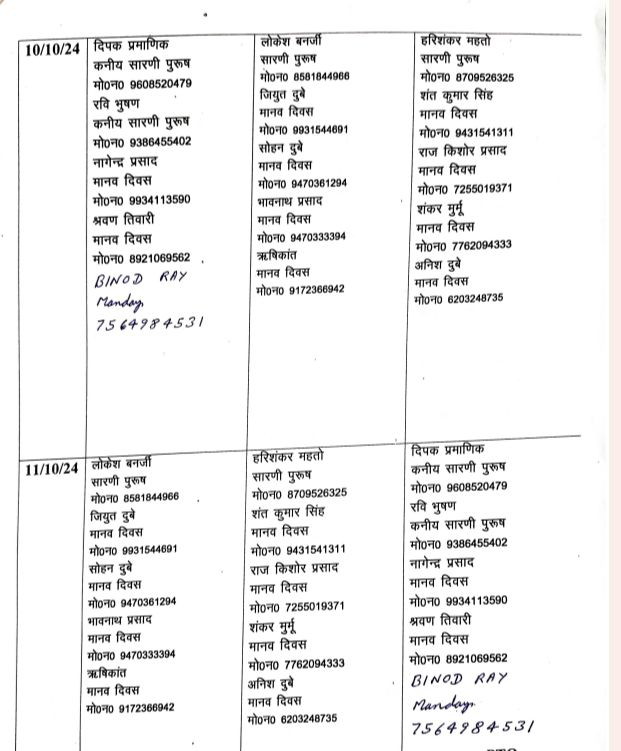 10/10/24
दिपक प्रमाणिक
कनीय सारणी पुरूष
मो०न0 9608520479
रवि भुषण
कनीय सारणी पुरूष
मो०न0 9386455402
नागेन्द्र प्रसाद
मानव दिवस
मो०न0 9934113590
श्रवण तिवारी
मानव दिवस
मो०न0 8921069562
BINOD RAY
Manday
7564984531
लोकेश बनर्जी
सारणी पुरूष
मो०न0 8581844966
जियुत दुबे
मानव दिवस
मो०न0 9931544691
सोहन दुबे
मानव दिवस
मो०न0 9470361294
भावनाथ प्रसाद
मानव दिवस
मो०न0 9470333394
ऋषिकांत
मानव दिवस
मो०न0 9172366942
हरिशंकर महतो
सारणी पुरूष
मो०न0 8709526325
शंत कुमार सिंह
मानव दिवस
मो०न0 9431541311
राज किशोर प्रसाद
मानव दिवस
मो०न0 7255019371
शंकर मुर्मू
मानव दिवस
मो०न0 7762094333
अनिश दुबे
मानव दिवस
मो०न0 6203248735
11/10/24
लोकेश बनर्जी
सारणी पुरूष
मो०न0 8581844966
जियुत दुबे
मानव दिवस
मो०न0 9931544691
सोहन दुबे
मानव दिवस
मो०न0 9470361294
भावनाथ प्रसाद
मानव दिवस
मो०न0 9470333394
ऋषिकांत
मानव दिवस
मो०न0 9172366942
हरिशंकर महतो
सारणी पुरूष
मो०न0 8709526325
शंत कुमार सिंह
मानव दिवस
मो०न0 9431541311
राज किशोर प्रसाद
मानव दिवस
मो०न0 7255019371
शंकर मुर्मू
मानव दिवस
मो०न0 7762094333
अनिश दुबे
मानव दिवस
मो०न0 6203248735
दिपक प्रमाणिक
कनीय सारणी पुरूष
मो०न0 9608520479
रवि भुषण
कनीय सारणी पुरूष
मो०न0 9386455402
नागेन्द्र प्रसाद
मानव दिवस
मो०न0 9934113590
श्रवण तिवारी
मानव दिवस
मो०न0 8921069562
BINOD RAY
Manday
7564984531